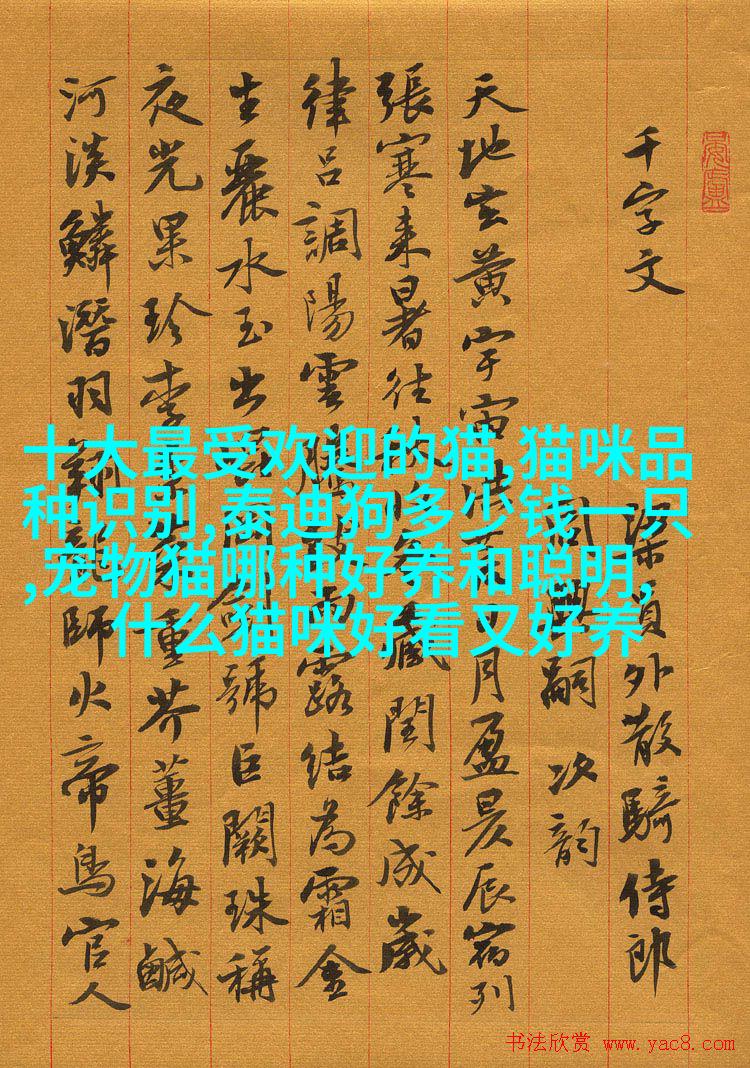 千字文 梁員外散騎侍郎
周興嗣次韵
天地玄黄宇宙洪荒日月盈昃辰宿列
張寒来暑往秋收冬藏閏餘成歲
律吕調陽雲騰致雨露結為霜金
生麗水玉出崑岡劍號巨闕珠稱
夜光果珍李柰菜重芥薑海鹹
河淡鱗潜羽翔龍師火帝鳥官人
十大最受欢迎的猫,猫咪品
种识别,泰迪狗多少钱一只
,宠物猫哪种好养和聪明,
什么猫咪好看又好养
书法欣赏 www.yac8.com